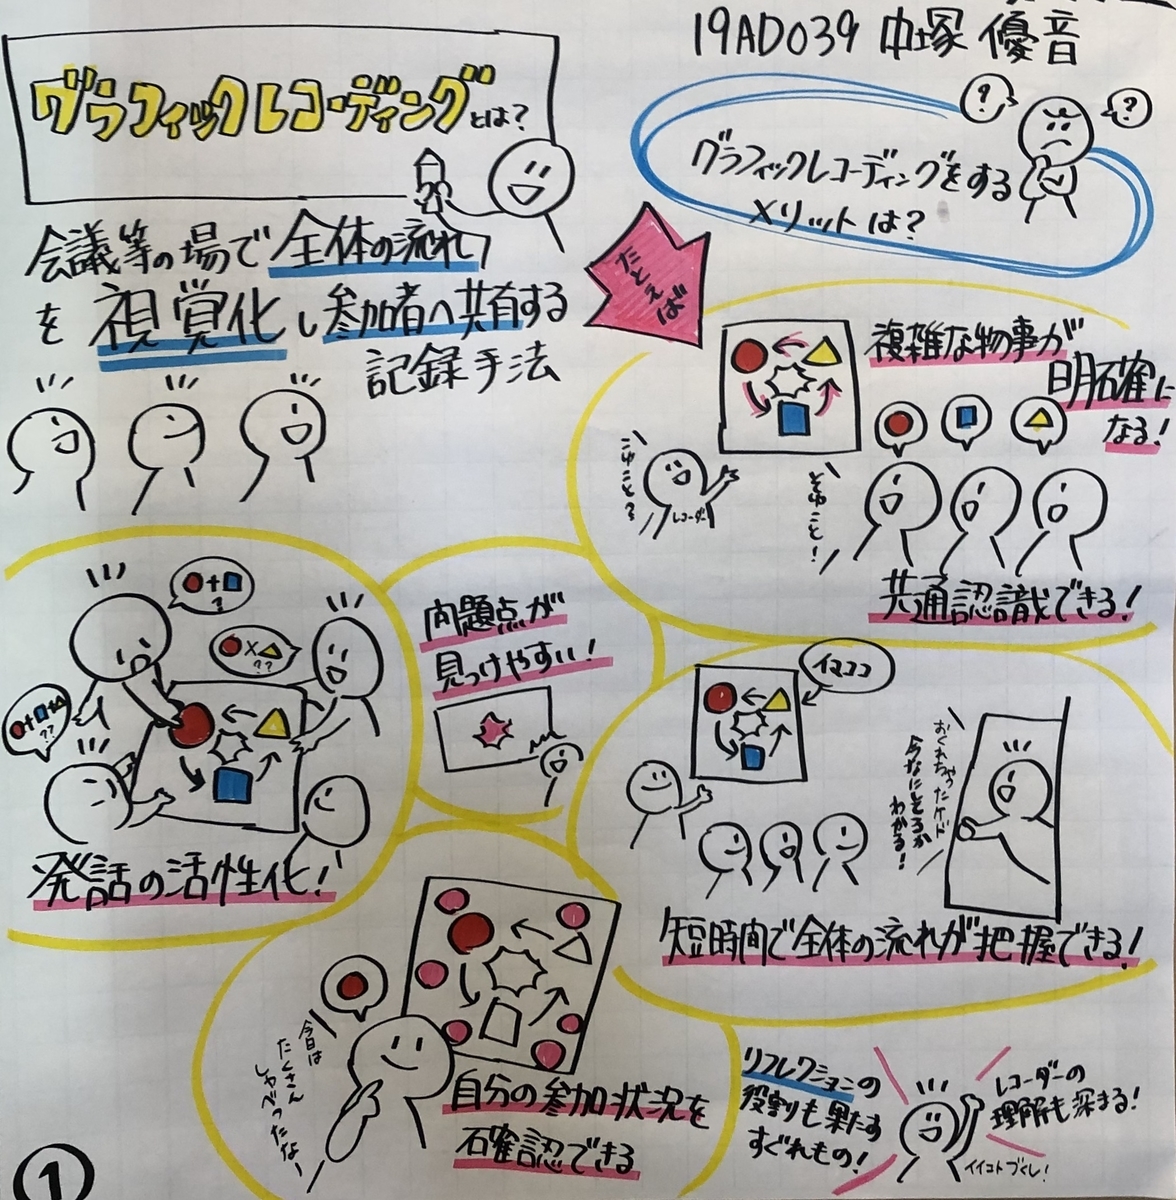 19AD039 中塚 優音
グラフィックレコーディングとは?
会議等の場で全体の流れ
を視覚化し参加者へ共有する
記録手法
グラフィックレコーディングをする
メリットは?
?
?
たとえば
複雑な物事が
明確に
なる!
こゆこと?
レコーダー
そゆこと!
共通認識できる!
+
?
×
??
+ +
??
発話の活性化!
問題点が
見つけやすい!
イマココ
おくれちゃったケド
今なにしてるか
わかる!
短時間で全体の流れが把握できる!
今日は
たくさん
しゃべったなー
自分の参加状況を
確認できる
リフレクションの
役割も果たす
すぐれもの!
レコーダーの
理解も深まる!
イイコトづくし!
1